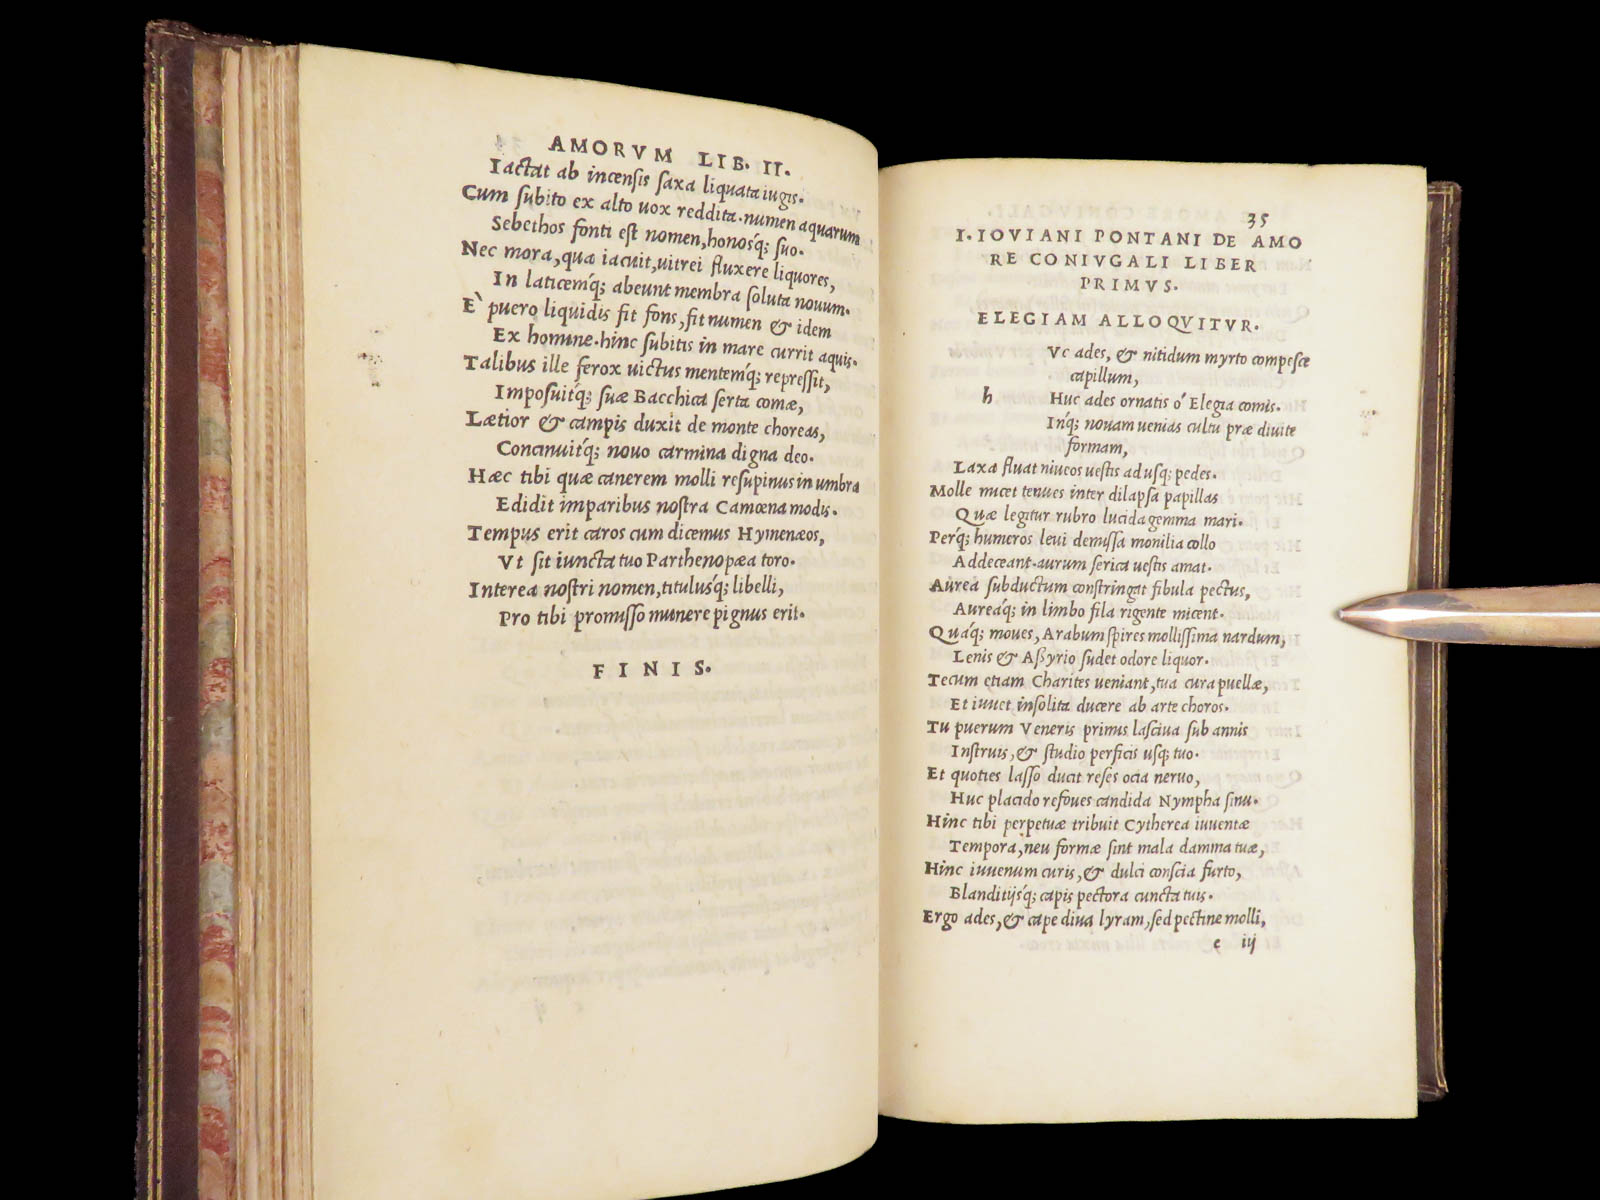 AMORVM LIB. II.
Iactat ab incensis saxa liquata iugis.
Cum subito ex alto uox reddita.numen aquarum
Sebethos fonti est nomen,honosq́; suo.
Nec mora,qua iacuit,uitrei fluxere liquores,
In laticemq́; abeunt membra soluta nouum.
E` puero liquidis fit fons,fit numen & idem
Ex homine.hinc subitis in mare currit aquis.
Talibus ille ferox uictus mentemq́; repressit,
Imposuitq́; suæ Bacchica serta comæ,
Lætior & campis duxit de monte choreas,
Concinuitq́; nouo carmina digna deo.
Hæc tibi quæ canerem molli resupinus in umbra
Edidit imparibus nostra Camœna modis.
Tempus erit caros cum dicemus Hymenæos,
Vt sit iuncta tuo Parthenopæa toro.
Interea nostri nomen,titulusq́; libelli,
Pro tibi promisso munere pignus erit.
FINIS.
35
I. IOVIANI PONTANI DE AMO
RE CONIVGALI LIBER
PRIMVS.
ELEGIAM ALLOQVITVR.
h
Vc ades, & nitidum myrto compesce
capillum,
Huc ades ornatis ó Elegia comis.
Inq́; nouam uenias cultu præ diuite
formam,
Laxa fluat niueos uestis ad usq; pedes.
Molle micet tenues inter dilapsa papillas
Quæ legitur rubro lucida gemma mari.
Perq́; humeros leui demissa monilia collo
Addeceant.aurum serica uestis amat.
Aurea subductum constringat fibula pectus,
Aureaq́; in limbo fila rigente micent.
Quáq; moues, Arabum spires mollissima nardum,
Lenis & Aßyrio sudet odore liquor.
Tecum etiam Charites ueniant,tua cura puellæ,
Et iuuet insolita ducere ab arte choros.
Tu puerum Veneris primis lasciua sub annis
Instruis,& studio perficis usq; tuo.
Et quoties lasso ducit reses ocia neruo,
Huc placido refoues candida Nympha sinu.
Hinc tibi perpetuæ tribuit Cytherea iuuentæ
Tempora,neu formæ sint mala damna tuæ,
Hinc iuuenum curis,& dulci conscia furto,
Blanditijsq́; capis pectora cuncta tuis.
Ergo ades,& cape diua lyram,sed pectine molli,
e iij